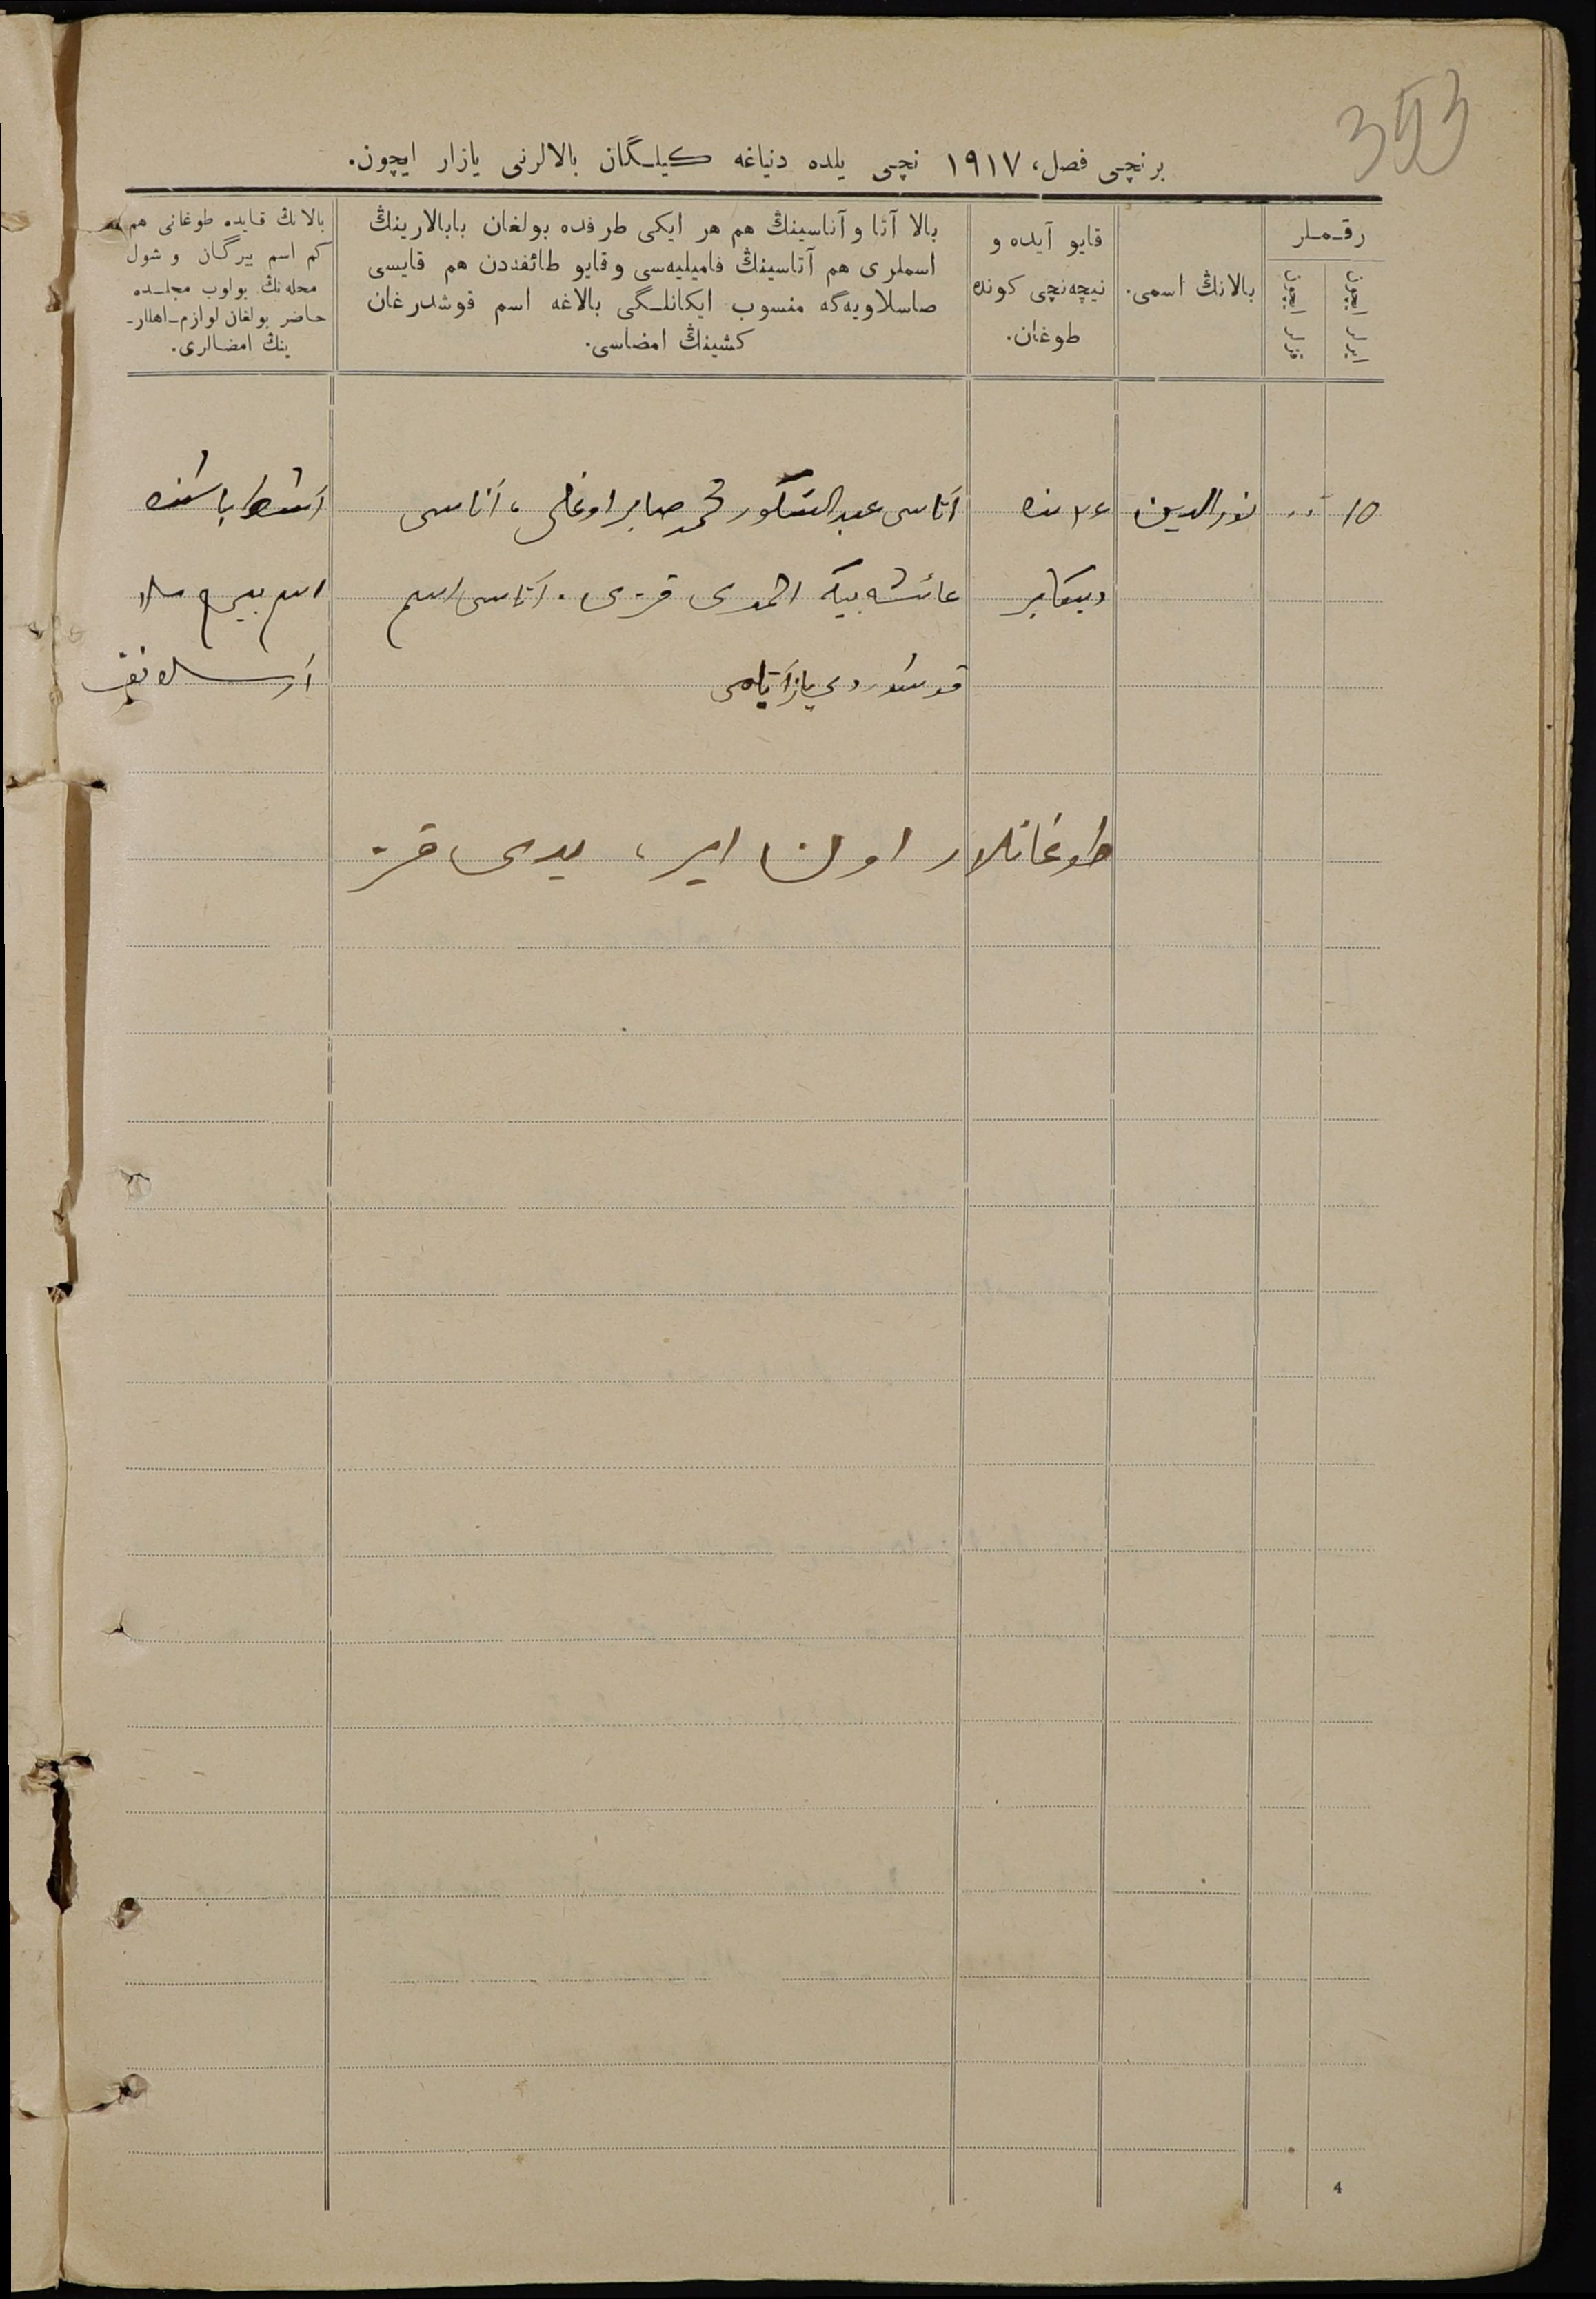 353
برنچی فصل، ١٩١٧ نچی یلده دنیاغه کیلگان بالالرنی یازار ایچون.
رقملر
ایرلر ایچون
قزلر ایچون
بالانڭ اسمی.
قایو آیده و
نیچه‌نچی کونده
طوغان.
بالا آتا و آناسینڭ هم هر ایکی طرفده بولغان بابالارینڭ
اسملری هم آتاسینڭ فامیلیه‌سی و قایو طائفه‌دن هم قایسی
صاسلاویه‌گه منسوب ایکانلگی بالاغه اسم قوشدرغان
کشینڭ امضاسی.
بالانڭ قایده طوغانی هم
کم اسم بیرگان و شول
محله‌نڭ بولوب مجلسده
حاضر بولغان لوازم اهللار-
ینڭ امضالری.
١٥ ٠٠ نورالدین ٢٤ نده آتاسی عبدالشکور محمد صابر اوغلی، آناسی
دیکابر عائشه بیکه احمدی قزی. آتاسی اسم
قوشدردی یاز آتاسی
اسم بیردم ملا
ارسلانف
طوغانلار اون ایر، یدی قز
4